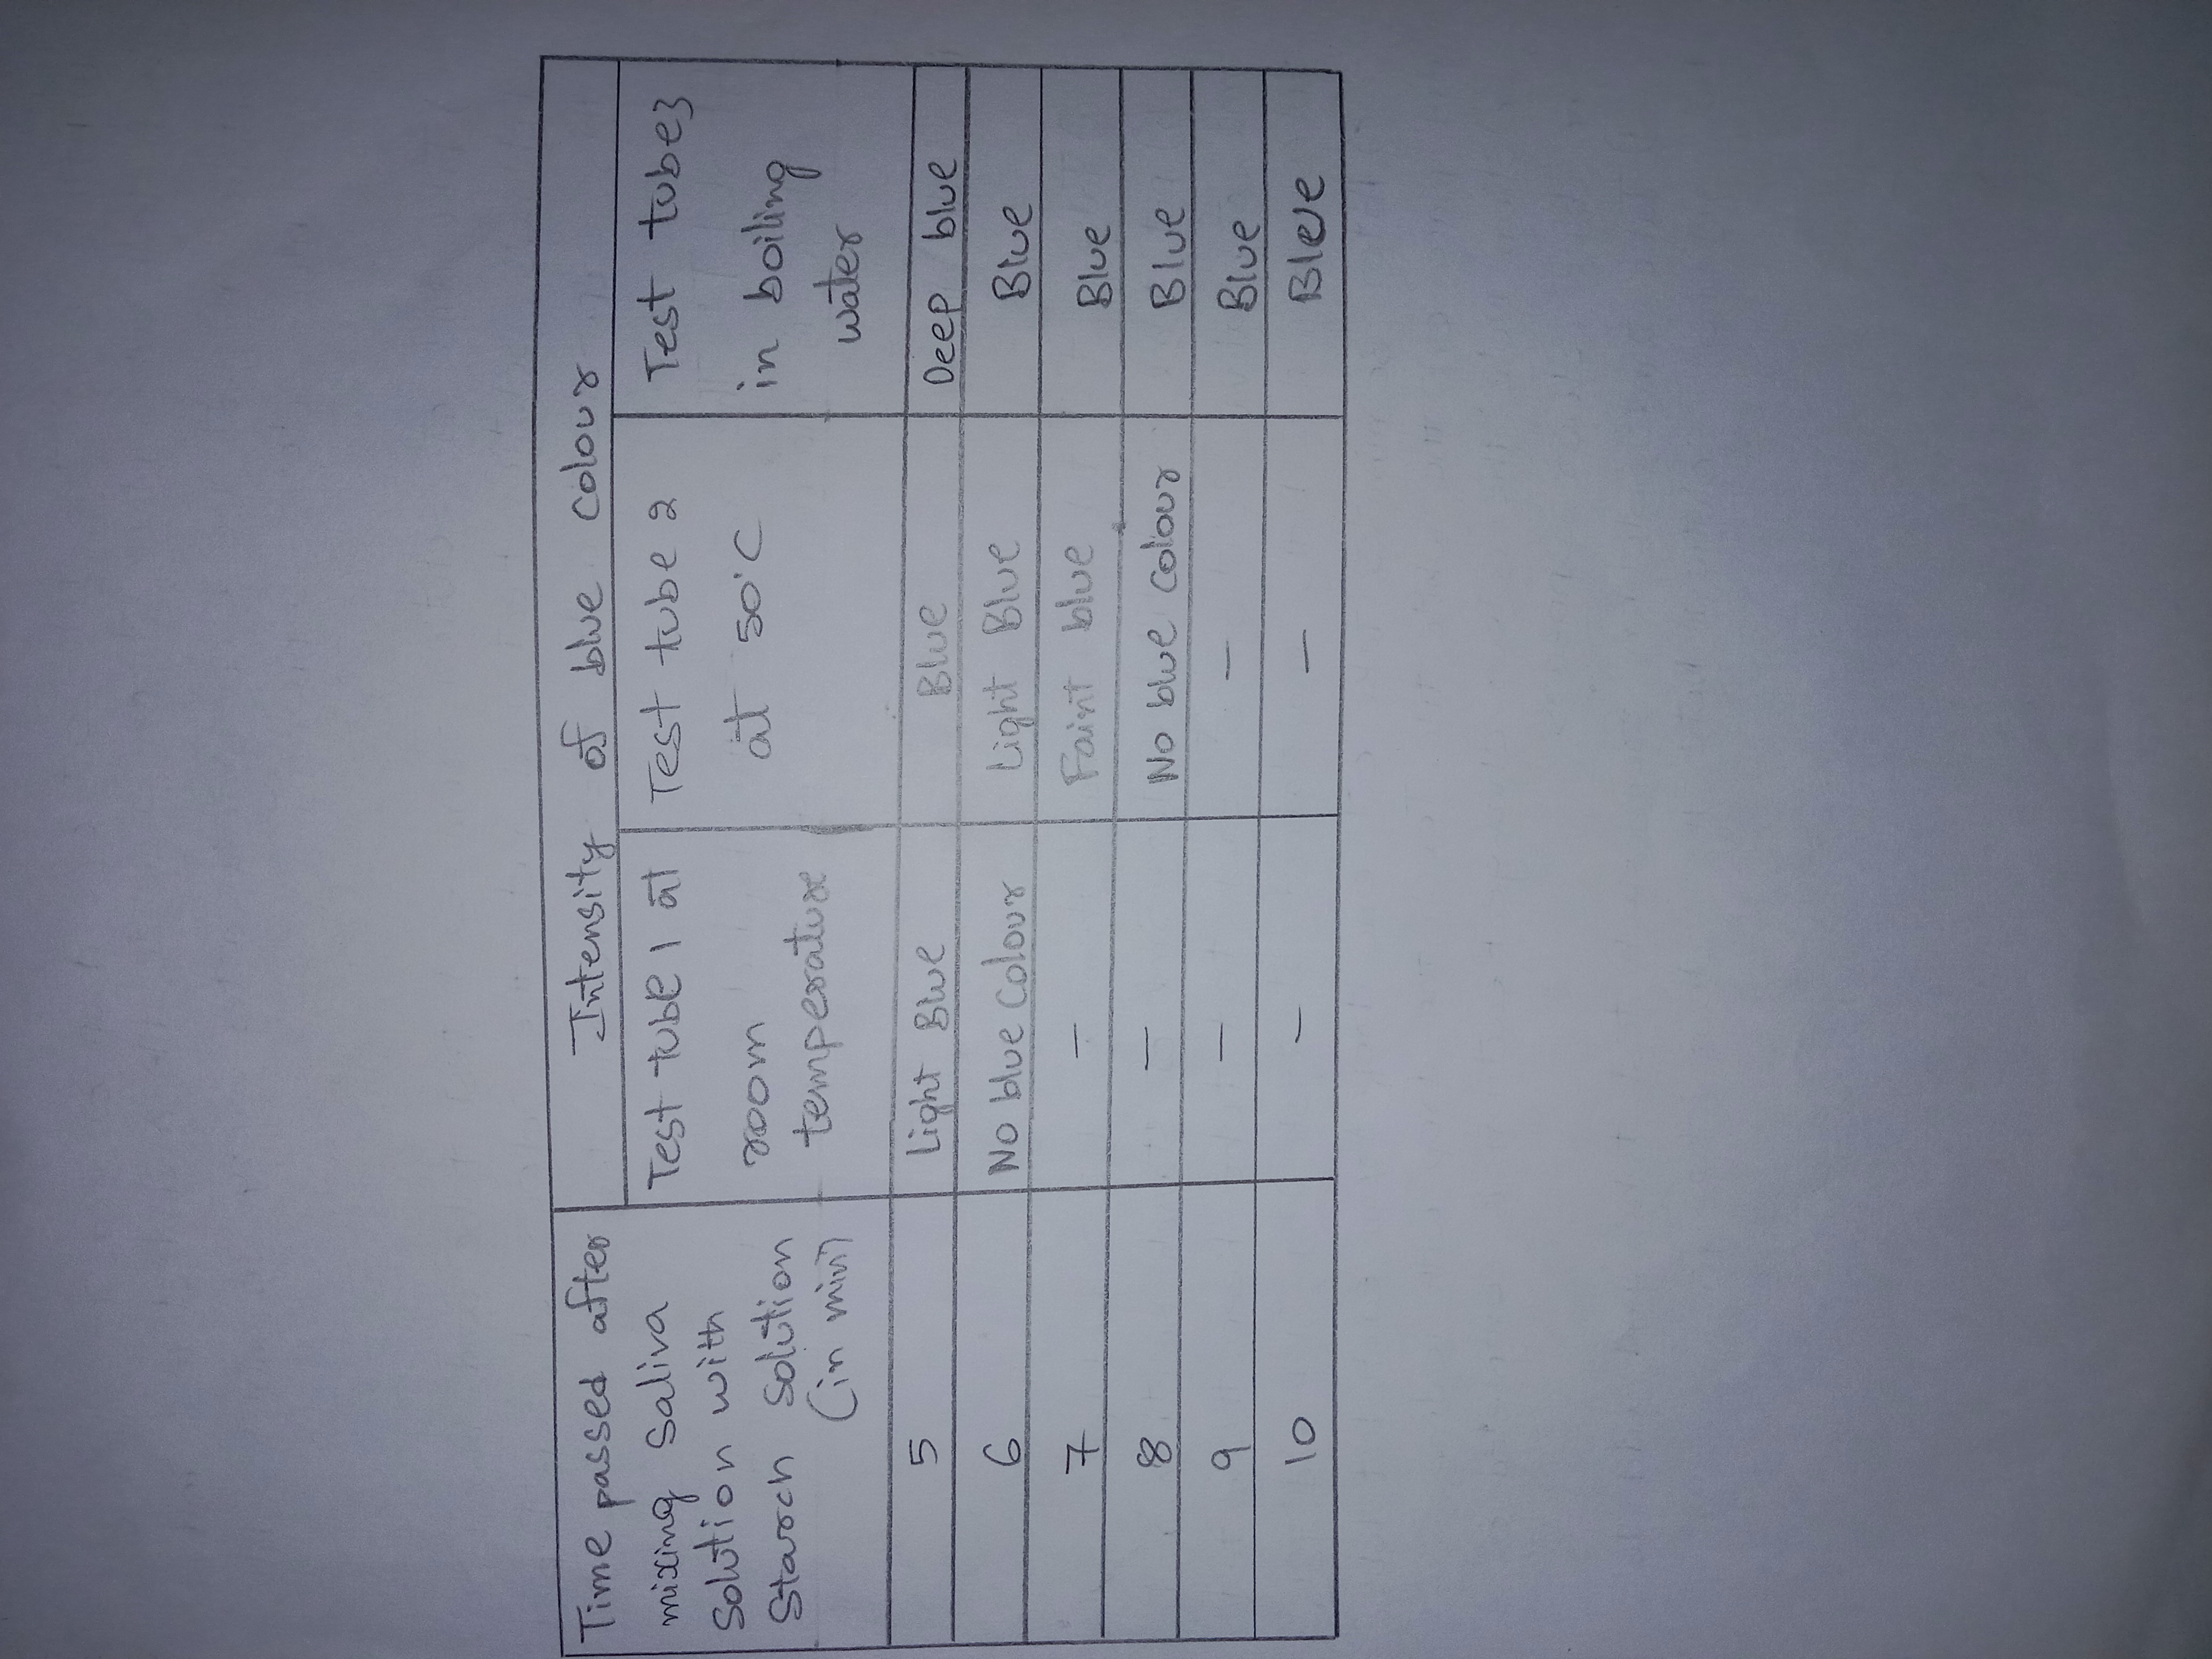 Time passed after
mixing Saliva
Solution with
Starch Solution
(in min)
Intensity of blue colour
Test tube 1 at
room
temperature
Test tube 2
at 50°C
Test tube 3
in boiling
water
5 Light Blue Blue Deep blue
6 No blue Colour Light Blue Blue
7 — Faint blue Blue
8 — No blue Colour Blue
9 — — Blue
10 — — Blue